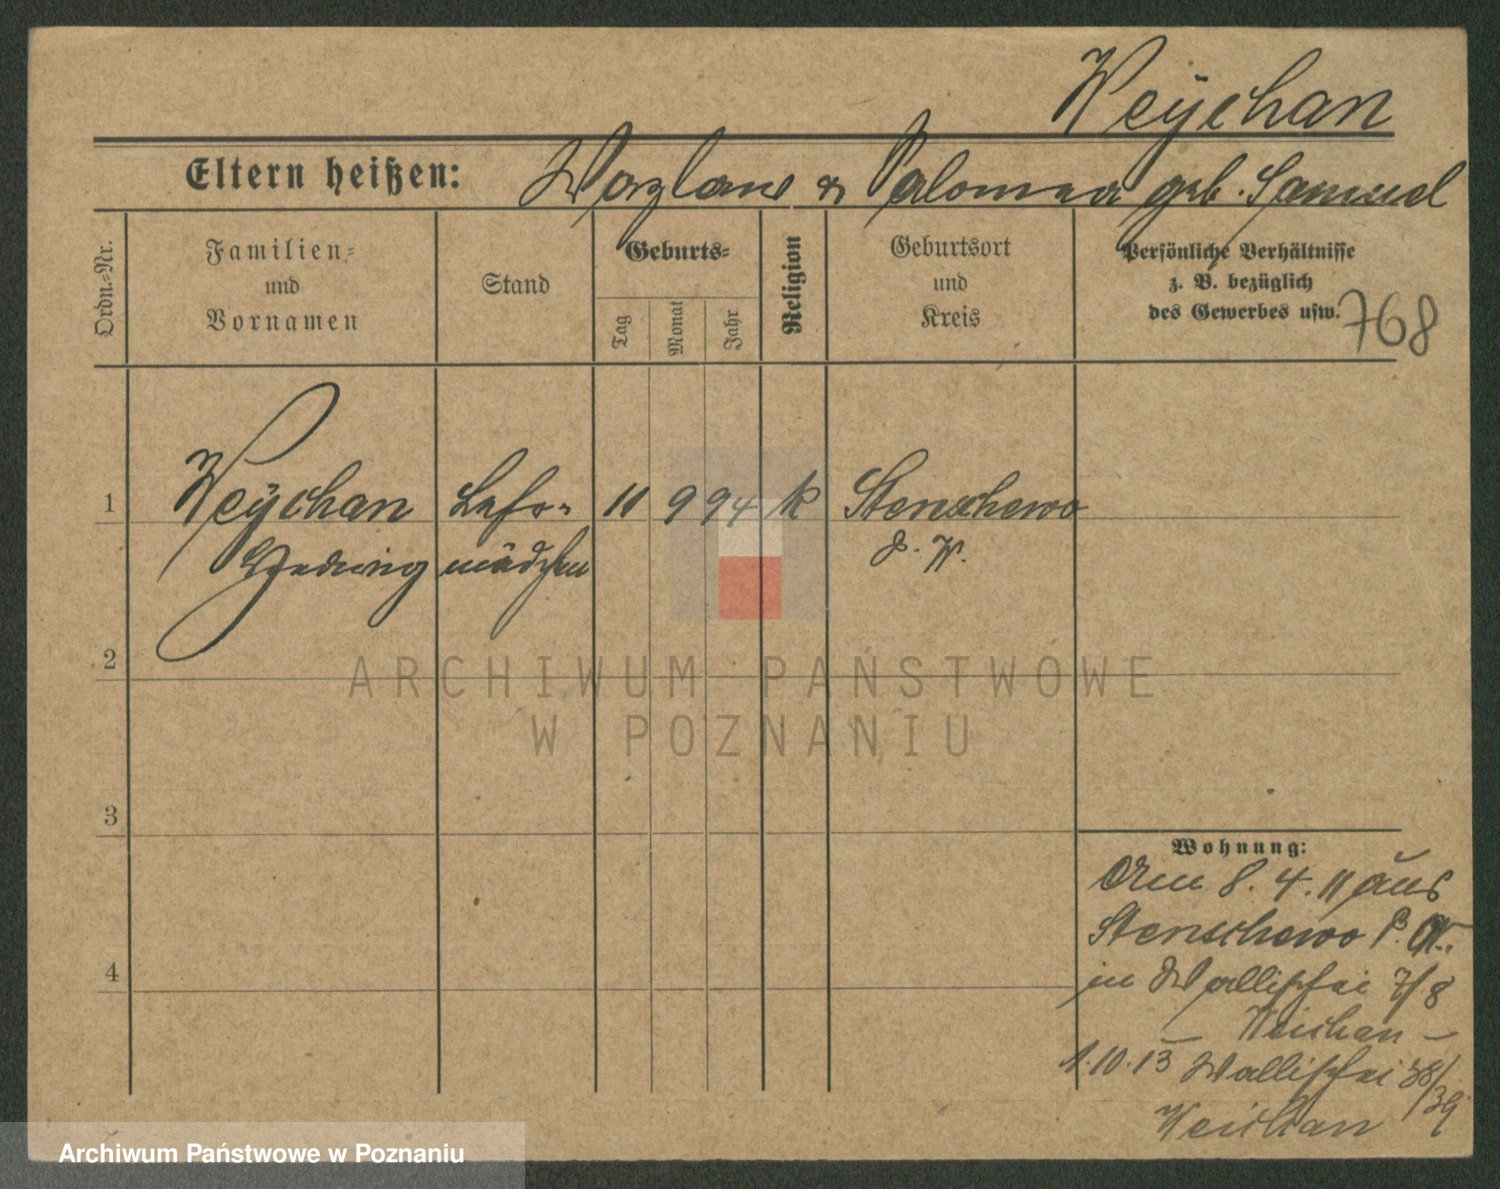 Weÿchan
Eltern heißen: Wazlaw & Salomea geb. Samuel
Ordn.-Nr.
Familien- und Vornamen
Stand
Geburts-
Tag
Monat
Jahr
Religion
Geburtsort und Kreis
Persönliche Verhältnisse
z. B. bezüglich
des Gewerbes usw.
768
1 Weÿchan Lehr- 11 9 94 k Stenschewo
Hedwig mädchen P. W.
2
3
4
Wohnung:
Am 8. 4. 11 aus
Stenschewo P. W.
in Wallischei 7/8
Weichan -
1.10.13 Wallischei 38/39
Weichan
ARCHIWUM PAŃSTWOWE
W POZNANIU
Archiwum Państwowe w Poznaniu